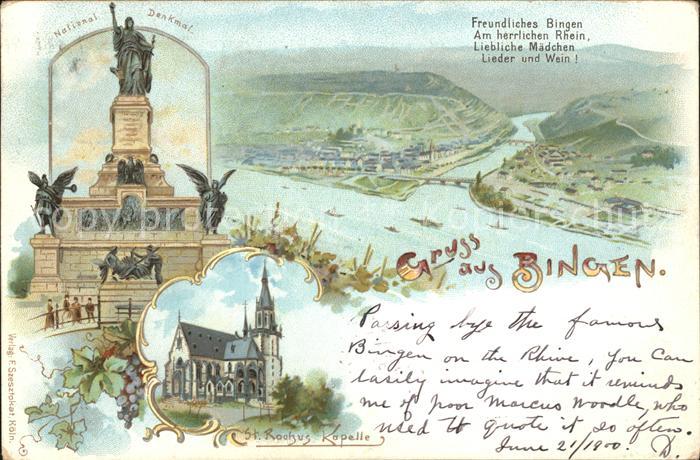 National Denkmal.
Freundliches Bingen
Am herrlichen Rhein,
Liebliche Mädchen
Lieder und Wein!
Gruss
aus BINGEN.
Passing bye the famous
Bingen on the Rhine, you can
easily imagine that it reminds
me of poor Marcus Woodle, who
used to quote it so often.
June 21/1900. D.
St. Rochus Kapelle
Verlag: F. Szesztokat, Köln.